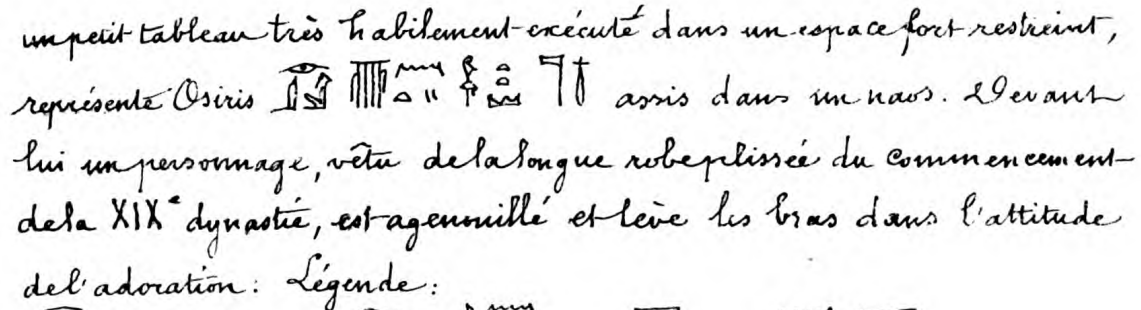 un petit tableau très habilement exécuté dans un espace fort restreint,
représente Osiris assis dans un naos. Devant
lui un personnage, vêtu de la longue robe plissée du commencement
de la XIXe dynastie, est agenouillé et lève les bras dans l'attitude
de l'adoration: Légende: